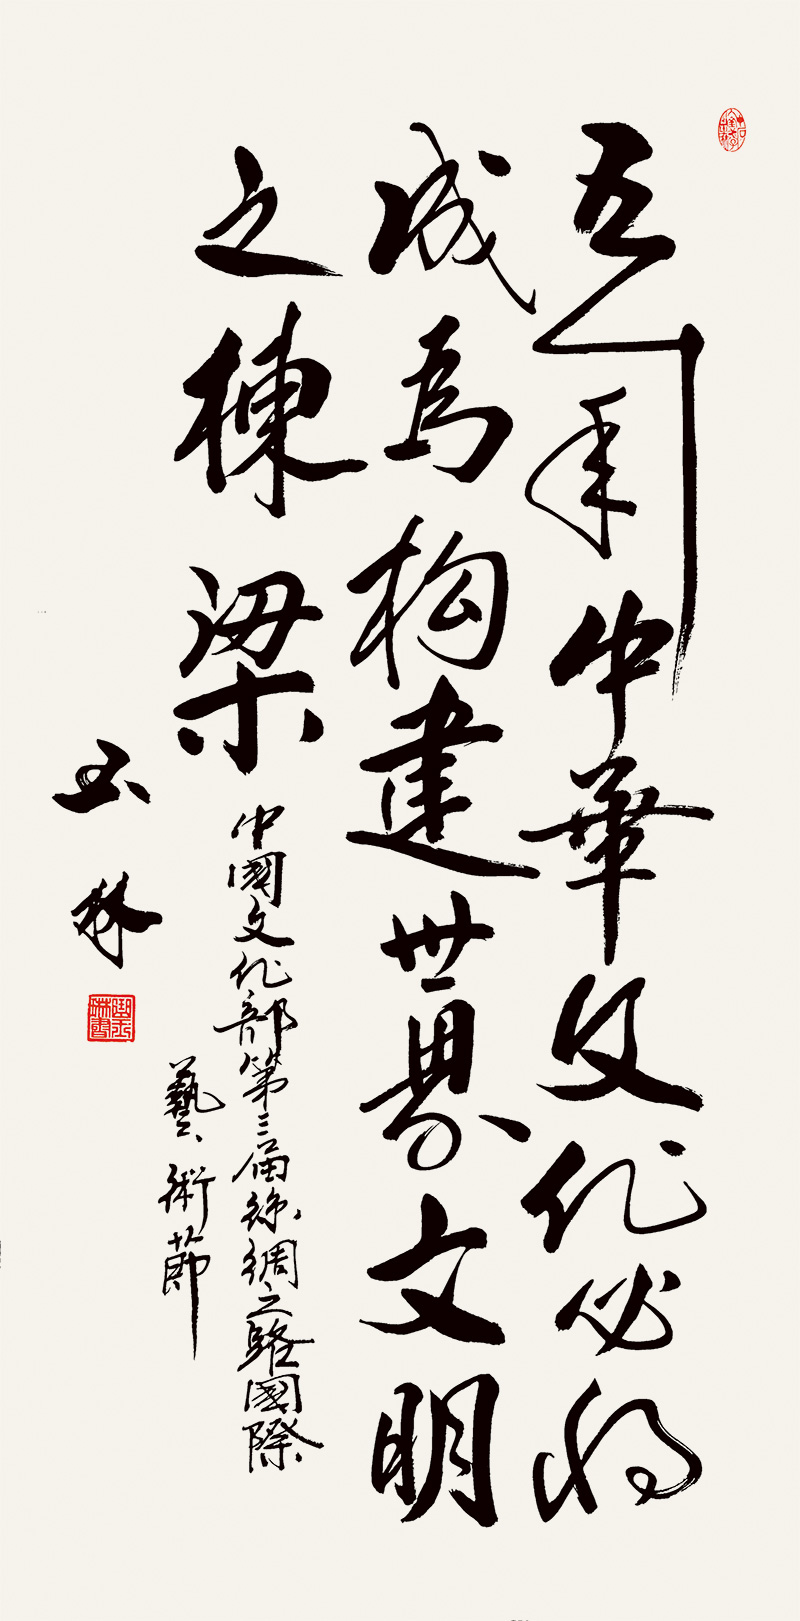 五千年中華文化必將
成為构建世界文明
之棟梁
中國文化部第三届絲綢之路國際
藝術節
玉林